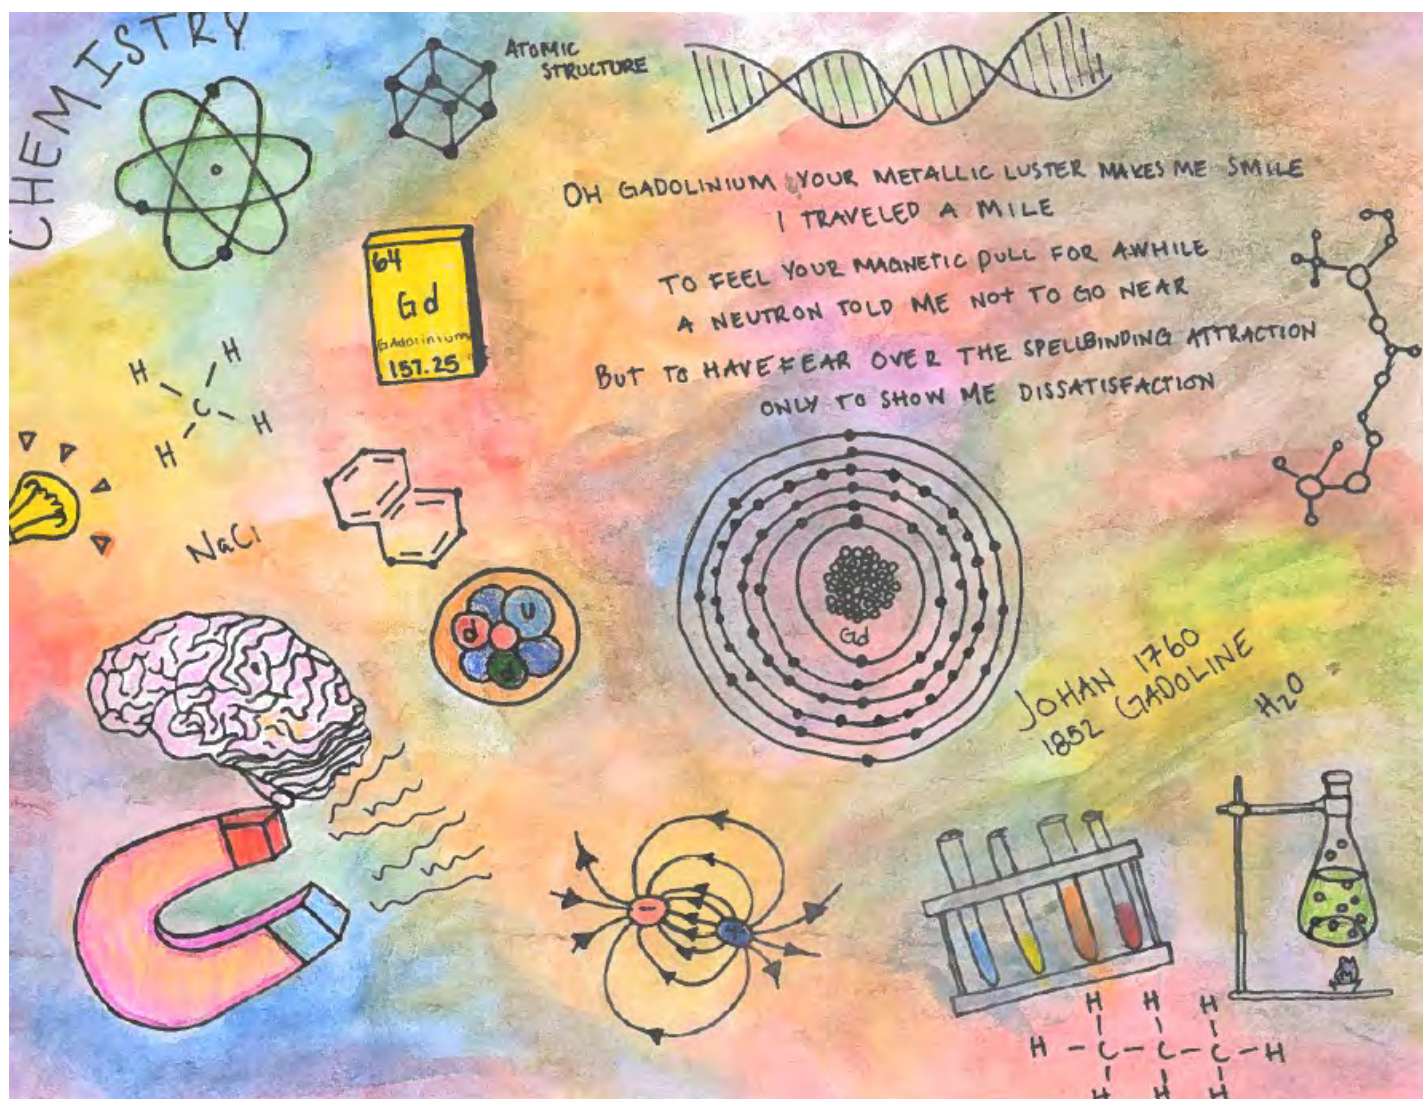 CHEMISTRY
ATOMIC
STRUCTURE
OH GADOLINIUM YOUR METALLIC LUSTER MAKES ME SMILE
I TRAVELED A MILE
TO FEEL YOUR MAGNETIC PULL FOR AWHILE
A NEUTRON TOLD ME NOT TO GO NEAR
BUT TO HAVE FEAR OVER THE SPELLBINDING ATTRACTION
ONLY TO SHOW ME DISSATISFACTION
64
Gd
GAdolinium
157.25
H H
C
H H
NaCl
U
d
Gd
JOHAN 1760
1852 GADOLINE
H2O
-
+
H H H
H - C - C - C - H
H H H